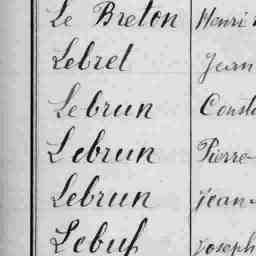 Le Breton Henri
Lebret Jean
Lebrun
Lebrun Pierre
Lebrun Jean
Lebuf Joseph